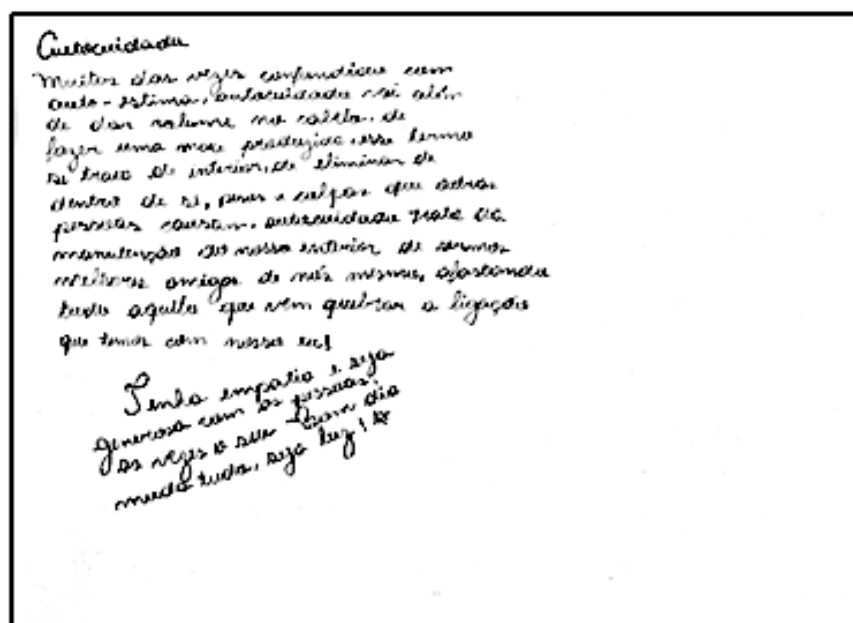 Autocuidado
Muitas das vezes confundido com
auto-estima, autocuidado vai além
de dar volume no cabelo, de
fazer uma make produzida, esse termo
se trata de interior, de eliminar de
dentro de si, pesos e culpas que outras
pessoas causam. autocuidado trata da
manutenção do nosso interior de sermos
melhores amigos de nós mesmos, afastando
tudo aquilo que vem quebrar a ligação
que temos com nosso eu!
Tenha empatia e seja
generoso com as pessoas!
as vezes o seu Bom dia
muda tudo, seja luz!